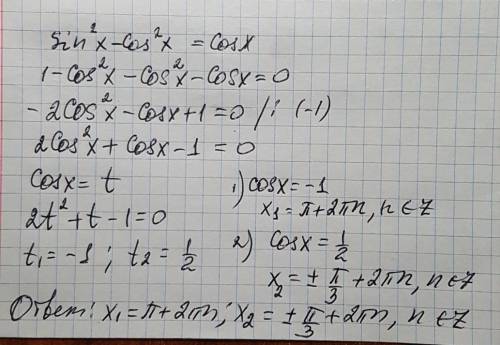 sin²x - cos²x = cosx
1 - cos²x - cos²x - cosx = 0
- 2cos²x - cosx + 1 = 0 /: (-1)
2cos²x + cosx - 1 = 0
cosx = t
2t² + t - 1 = 0
t₁ = -1 ; t₂ = 1/2
1) cosx = -1
x₁ = π + 2πn, n ∈ Z
2) cosx = 1/2
x₂ = ± π/3 + 2πn, n ∈ Z
Ответ: x₁ = π + 2πn; x₂ = ± π/3 + 2πn, n ∈ Z